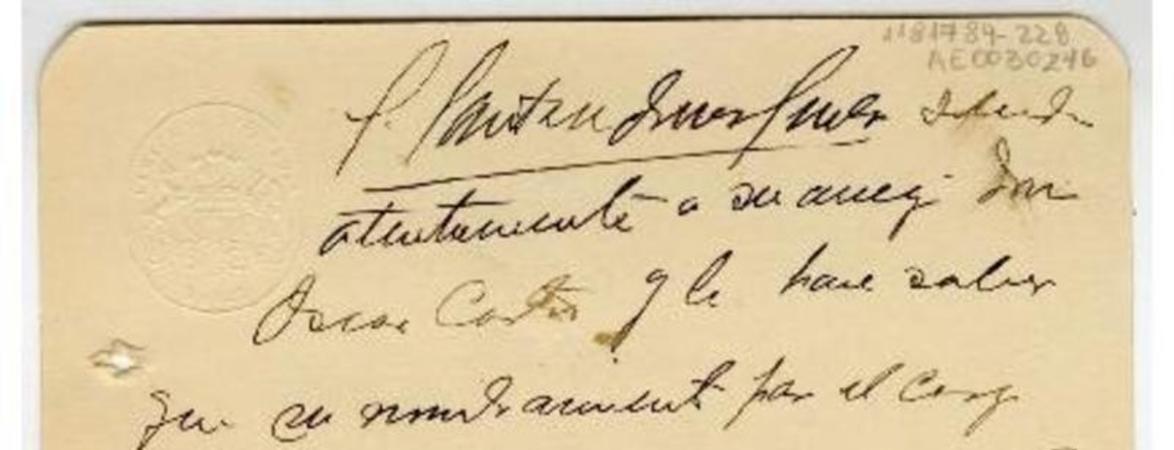 1181784-228
AE0030246
saluda
atentamente a su amigo Don
Oscar Castro y le hace saber
que su nombramiento para el cargo